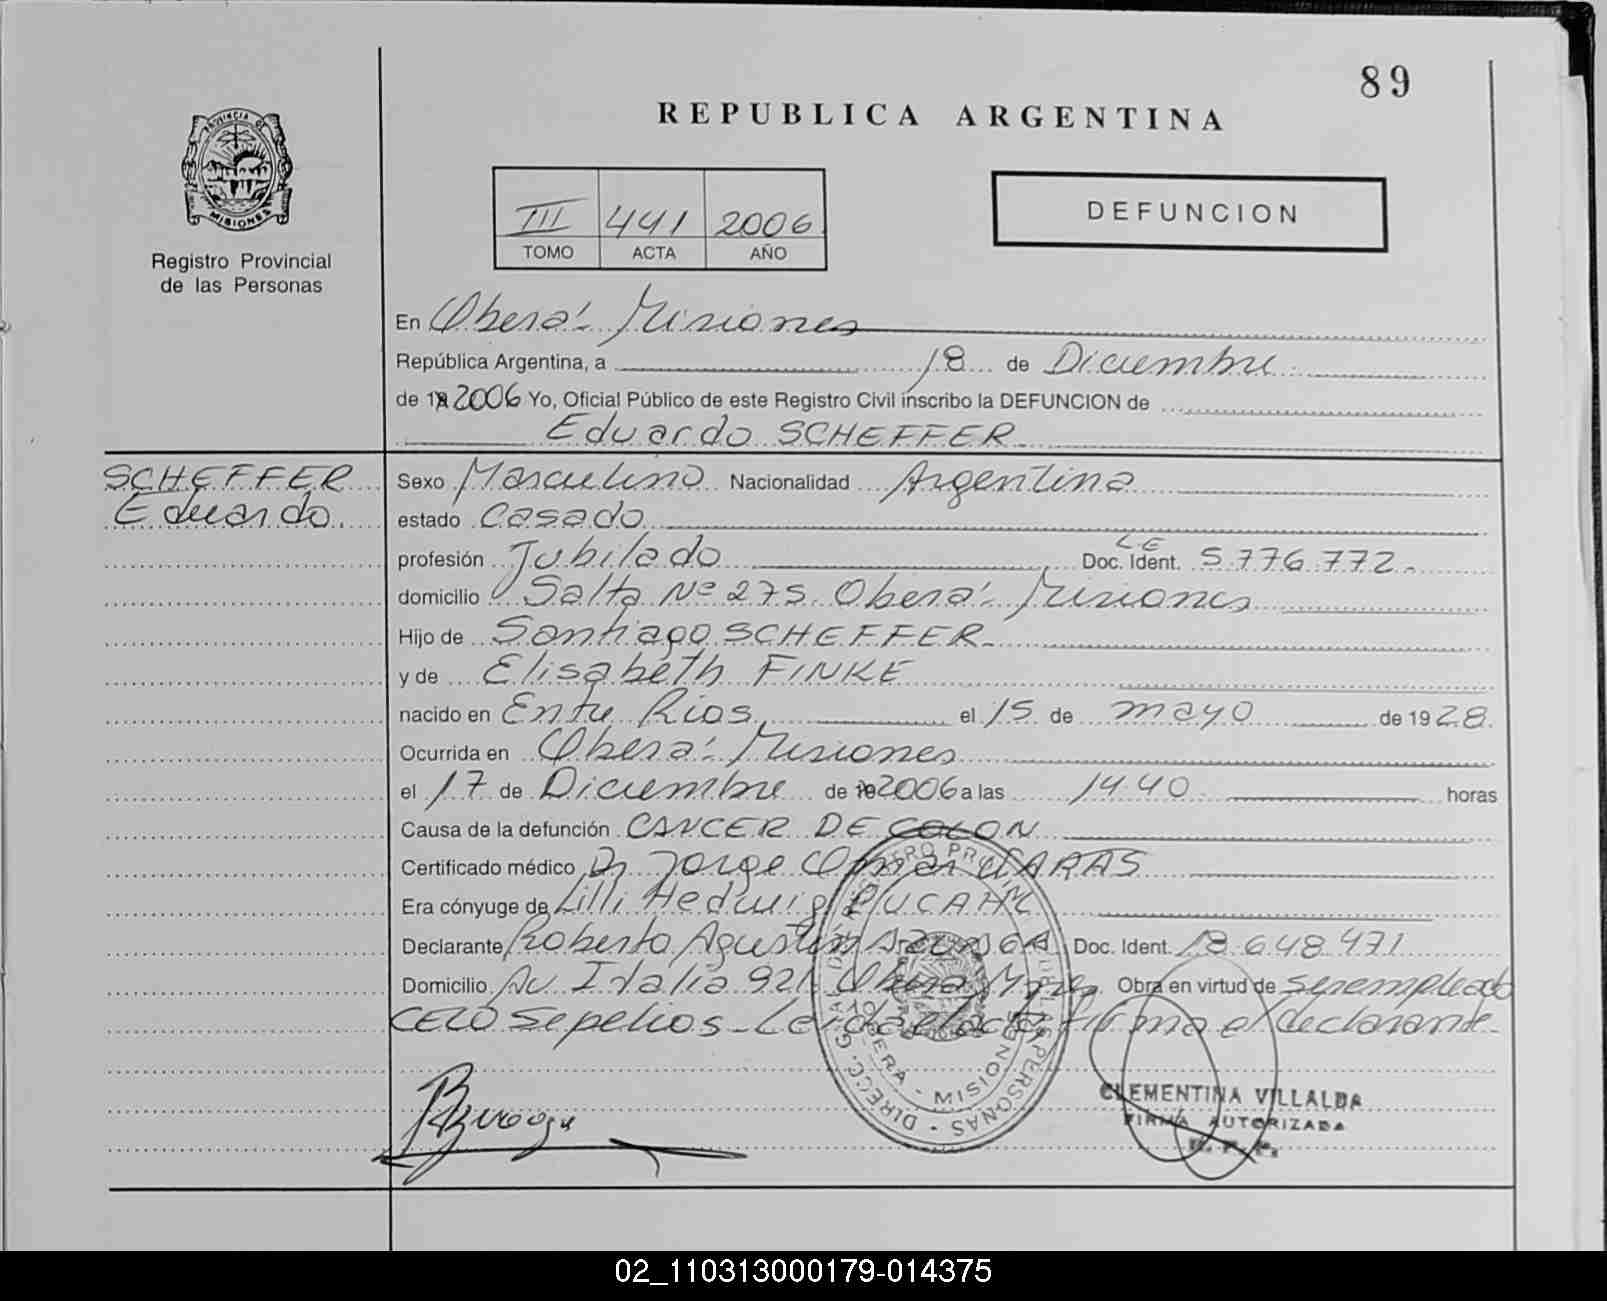 89
REPUBLICA ARGENTINA
PROVINCIA DE
MISIONES
Registro Provincial
de las Personas
III 441 2006
TOMO ACTA AÑO
DEFUNCION
En Oberá - Misiones
República Argentina, a 18 de Diciembre
de 19 2006 Yo, Oficial Público de este Registro Civil inscribo la DEFUNCION de
Eduardo SCHEFFER
SCHEFFER
Eduardo
Sexo Masculino Nacionalidad Argentina
estado Casado
profesión Jubilado Doc. Ident. LE 5.776.772.-
domicilio Salta Nº 275. Oberá - Misiones
Hijo de Santiago SCHEFFER
y de Elisabeth FINKE
nacido en Entre Rios, el 15 de mayo de 1928.
Ocurrida en Oberá - Misiones
el 17 de Diciembre de 19 2006 a las 14.40 horas
Causa de la defunción CANCER DE COLON
Certificado médico Dr Jorge Omar
Era cónyuge de Lilli Hedwig
Declarante Roberto Agustin Doc. Ident. 18.648.471
Domicilio Av. Italia 921. Oberá Mnes Obra en virtud de ser empleado
CELO Sepelios - Leida el acta firma el declarante -
DIRECC. GRAL. DEL REGISTRO PROVINCIAL DE LAS PERSONAS
OBERA - MISIONES
CLEMENTINA VILLALBA
FIRMA AUTORIZADA
02_110313000179-014375